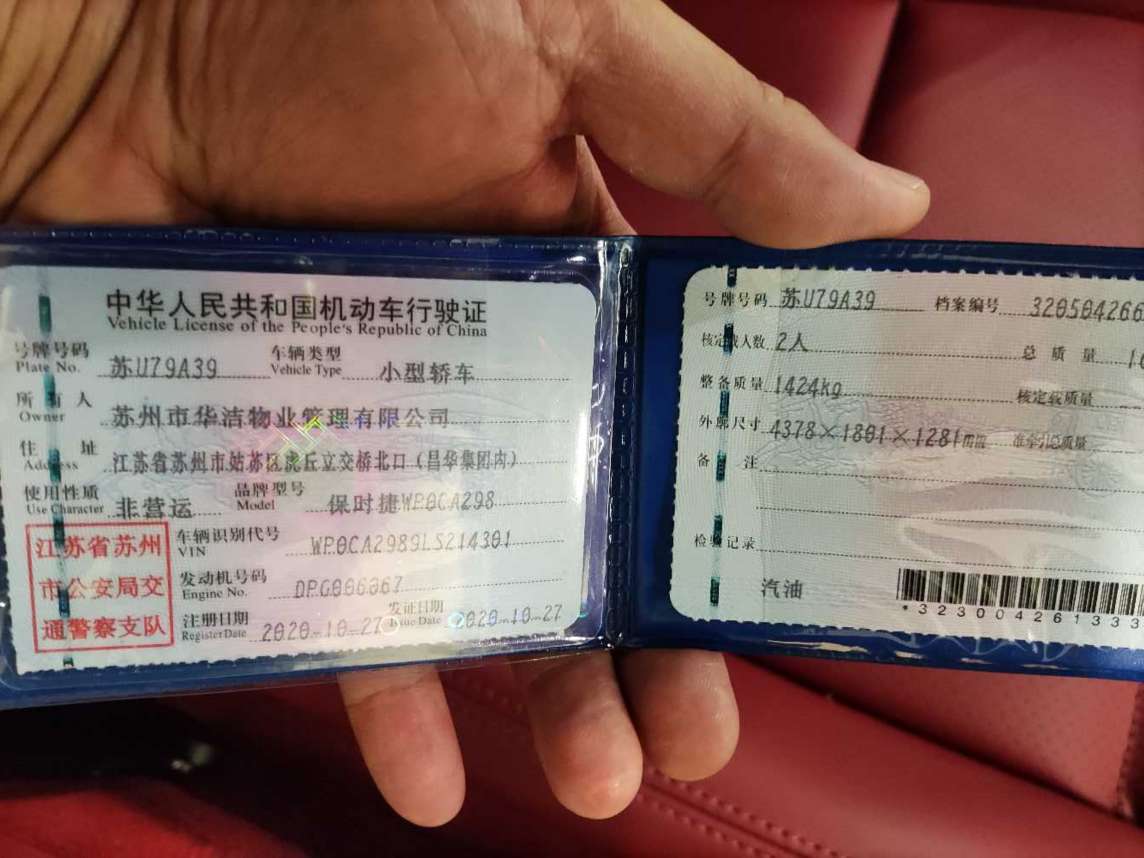 中华人民共和国机动车行驶证
Vehicle License of the People's Republic of China
号牌号码 苏U79A39 车辆类型 小型轿车
Plate No. Vehicle Type
所有人 苏州市华洁物业管理有限公司
Owner
住址 江苏省苏州市姑苏区虎丘立交桥北口(昌华集团内)
Address
使用性质 非营运 品牌型号 保时捷WP0CA298
Use Character Model
江苏省苏州
市公安局交
通警察支队
车辆识别代号 WP0CA2989LS214301
VIN
发动机号码 DPG006067
Engine No.
注册日期 2020-10-27 发证日期 2020-10-27
Register Date Issue Date
号牌号码 苏U79A39 档案编号 320504266
核定载人数 2人 总质量
整备质量 1424kg 核定载质量
外廓尺寸 4378×1801×1281mm 准牵引总质量
备注
检验记录
汽油
*323004261333